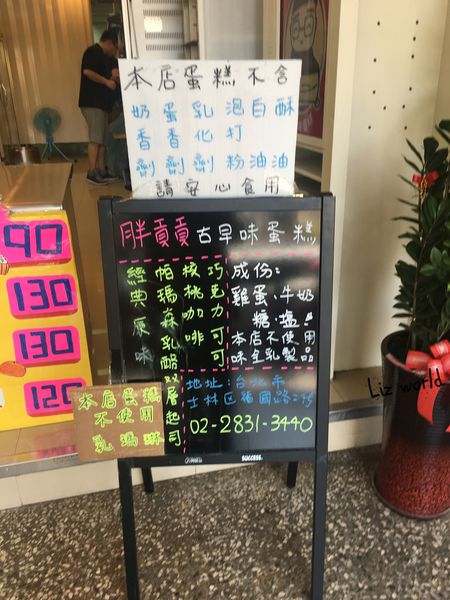 本店蛋糕不含
奶香劑
蛋香劑
乳化劑
泡打粉
白油
酥油
請安心食用
胖貢貢古早味蛋糕
經典原味
帕瑪森乳酪雙層起司
核桃咖啡
巧克力可可
成份：
雞蛋、牛奶
糖、鹽！
本店不使用
味全乳製品
地址：台北市
士林區福國路
02-2831-3440
本店蛋糕
不使用
乳瑪琳
90
130
130
120
SUCCESS
Liz world